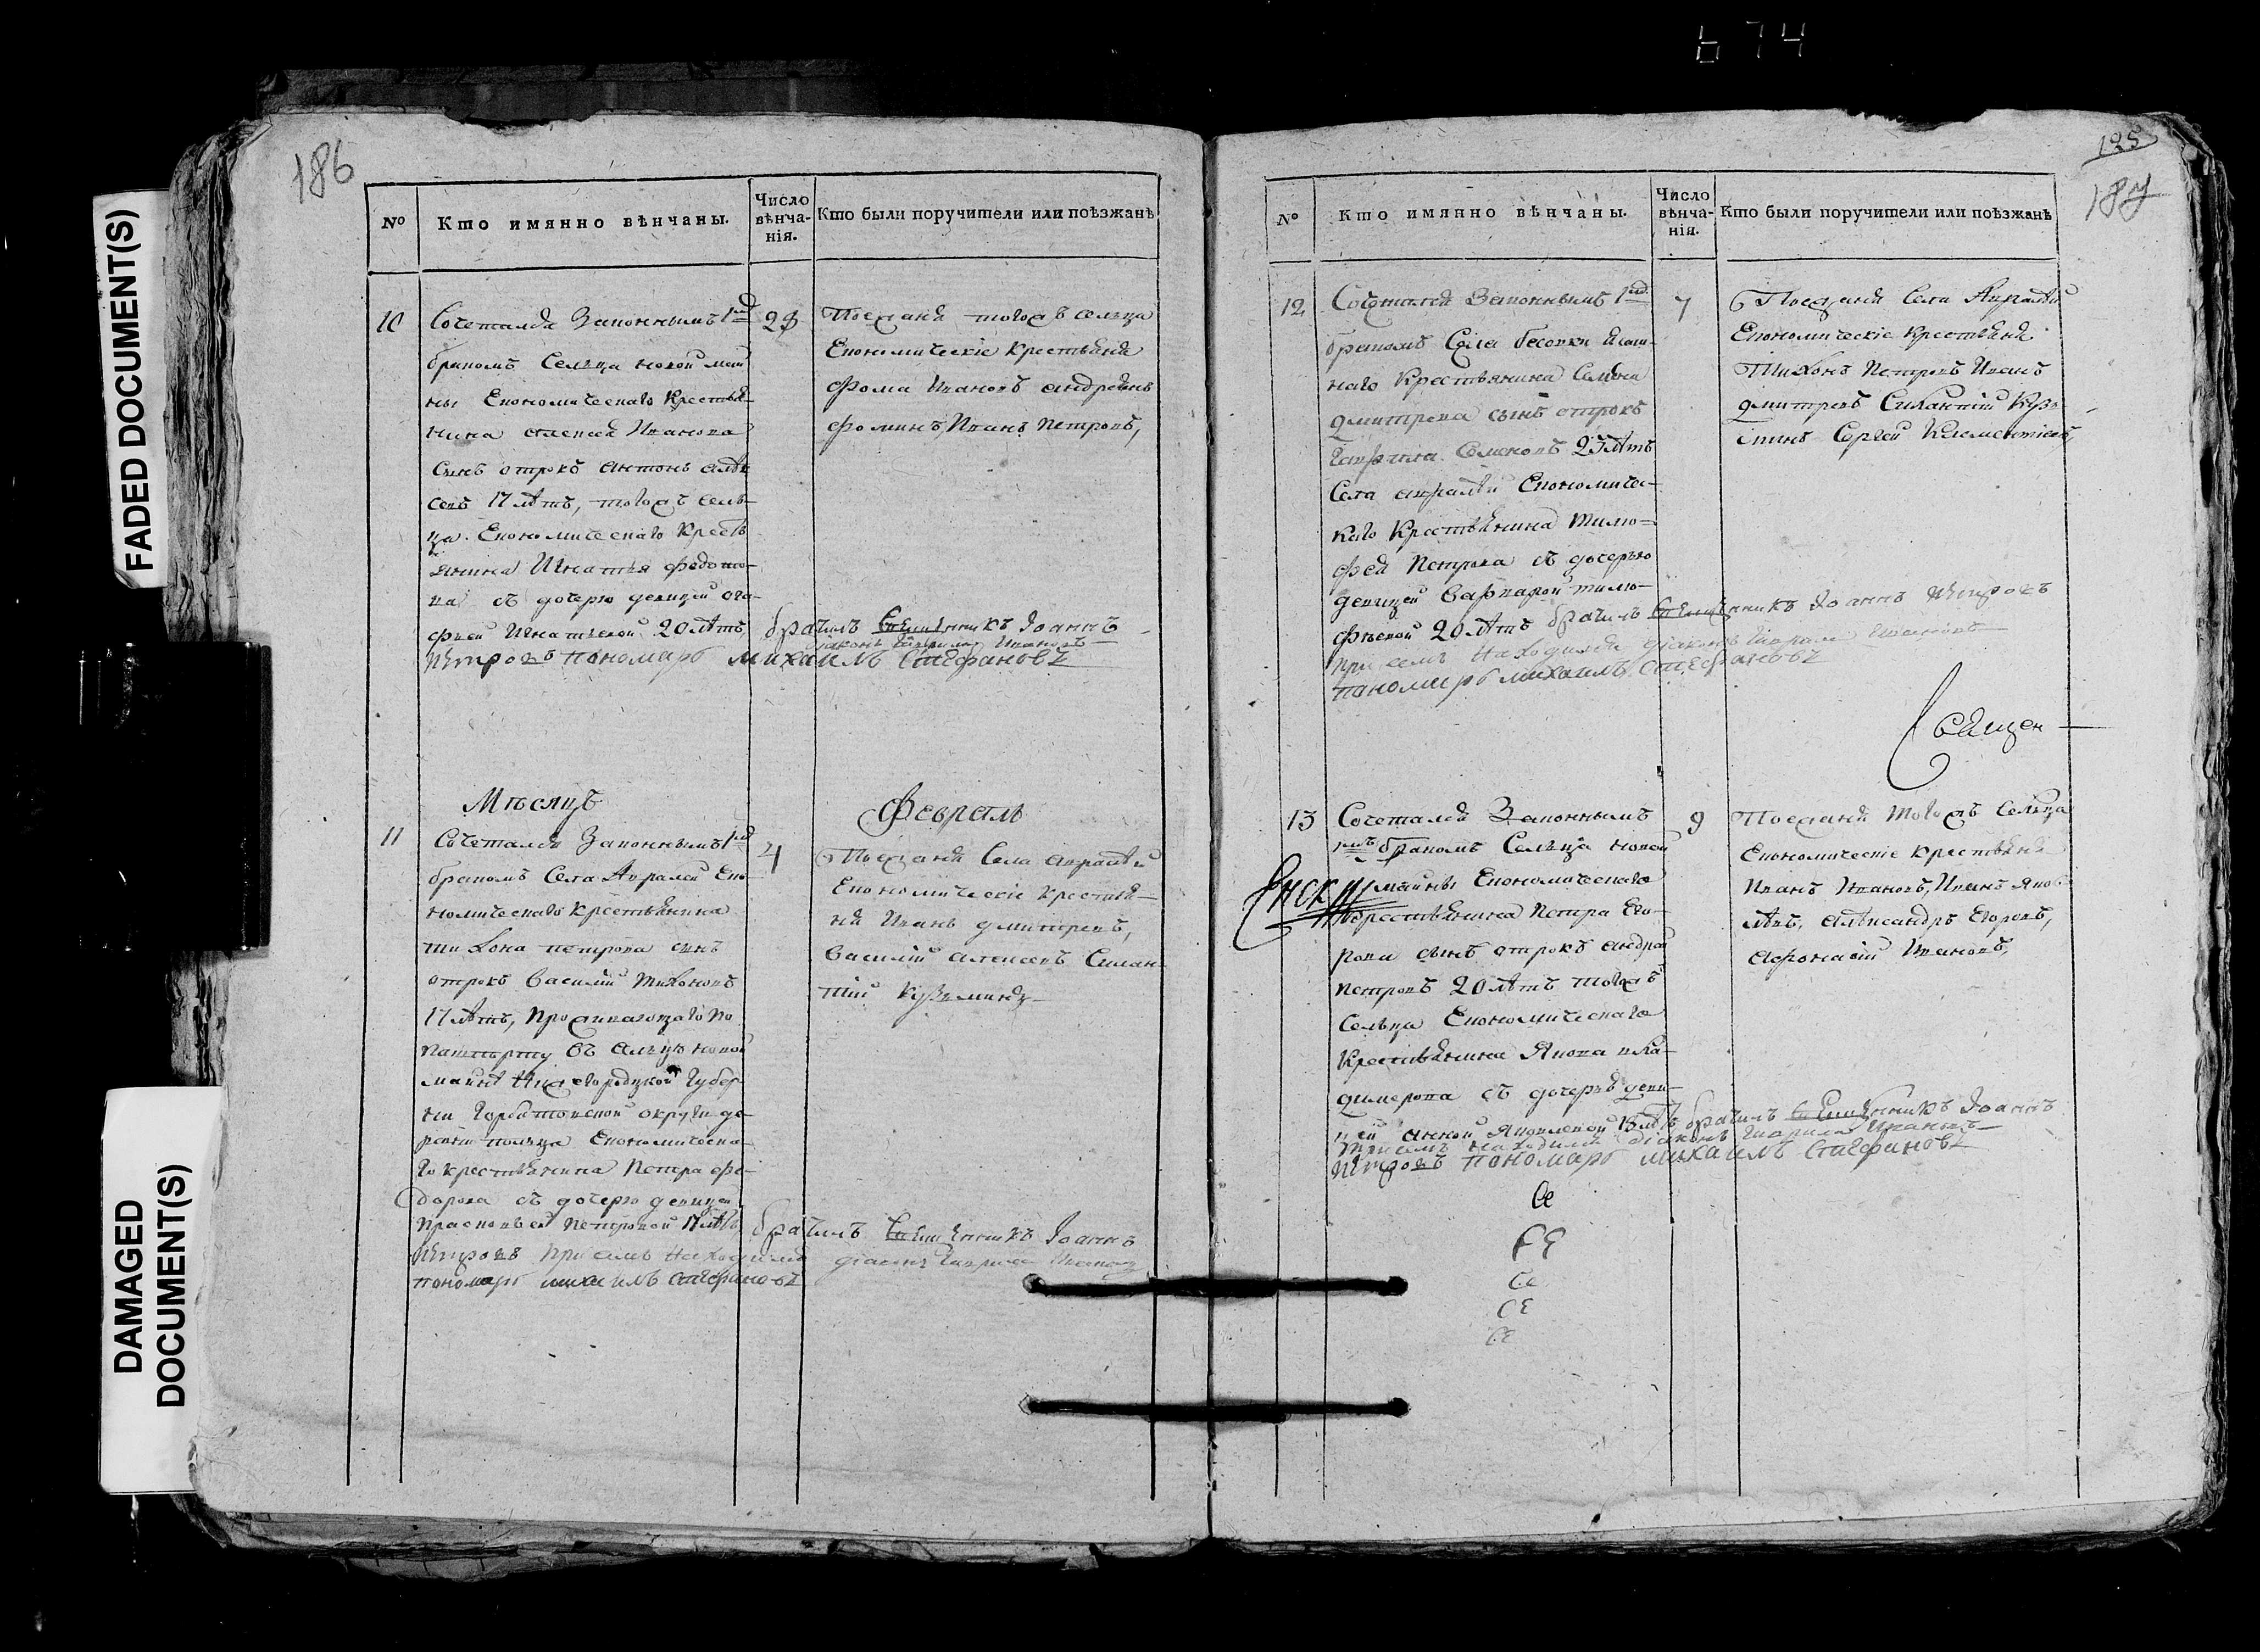 674
FADED DOCUMENT(S)
DAMAGED
DOCUMENT(S)
186
№ Кто имянно вѣнчаны. Число вѣнчанія. Кто были поручители или поѣзжанѣ
10
Сочетался Законнымъ 1мъ
бракомъ Сельца новой май
ны Економическаго Крестья-
нина Алексея Иванова
Сынъ отрокъ Антонъ Алек
сеевъ 17 лѣтъ, тогожъ сель-
ца Економическаго Кресть
янина Игнатья Федото-
ва съ дочерю девицею Ага-
фьей Игнатьевой 20 лѣтъ
28
Поезжаня тогожъ сельца
Економическіе крестьяня
Фома Ивановъ Андреянъ
Фоминъ, Иванъ Петровъ,
брачилъ Священникъ Іоаннъ
діаконъ Гаврила Ивановъ
Петровъ пономарь михаилъ Стефановъ
Мѣсяцъ Февраль
11
Сочетался Законнымъ 1мъ
бракомъ Села Авралей Еко
номическаго крестьянина
Тихона петрова сынъ
отрокъ Василій Тихоновъ
17 лѣтъ, Проживающаго по
пашпорту въ сельцѣ новой
майнѣ Нижегородцкой Губер
ніи Горбатовской округи де
ревни польца Економическа-
го крестьянина Петра Фе-
дорова съ дочерю девицею
Прасковьей Петровой 17 лѣтъ
4
Поезжаня Села Авралей
Економическіе крестья-
ня Иванъ дмитревъ,
Василій Алексеевъ Силан
тій Кузьминъ
брачилъ Священникъ Іоаннъ
Петровъ при семъ находился діаконъ Гаврила Ивановъ
пономарь михаилъ Стефановъ
185
187
№ Кто имянно вѣнчаны. Число вѣнчанія. Кто были поручители или поѣзжанѣ
12
Сочетался Законнымъ 1мъ
бракомъ Села бесовки
наго Крестьянина Семена
дмитрева сынъ отрокъ
Гаврила Семеновъ 23 лѣтъ
Села Авралей Економичес-
каго Крестьянина Тимо-
фея Петрова съ дочерью
девицей Варварой Тимо-
фѣевой 20 лѣтъ
7
Поезжаня Села Авралей
Економическіе крестьяня
Тихонъ Петровъ Иванъ
дмитревъ Силантій Кузь-
минъ Сергей Клементіевъ,
брачилъ Священникъ Іоаннъ Петровъ
при семъ находился діаконъ Гаврила Ивановъ
пономарь михаилъ Стефановъ
Священ
13
Сочетался Законнымъ
1мъ бракомъ Сельца новой
майны Економическаго
Крестьянина Петра Его-
рова сынъ отрокъ Андрей
Петровъ 20 лѣтъ тогожъ
Сельца Економическаго
Крестьянина Якова Вла-
димерова съ дочерью деви-
цей Анной Яковлевой 18 лѣтъ
9
Поезжаня тогожъ сельца
Економическіе крестьяня
Иванъ Ивановъ, Иванъ Яков
лѣвъ, Александръ Егоровъ,
Афонасій Ивановъ,
брачилъ Священникъ Іоаннъ
при семъ находился діаконъ Гаврила Ивановъ
Петровъ пономарь михаилъ Стефановъ
Се
СЕ
Се
СЕ
СЕ